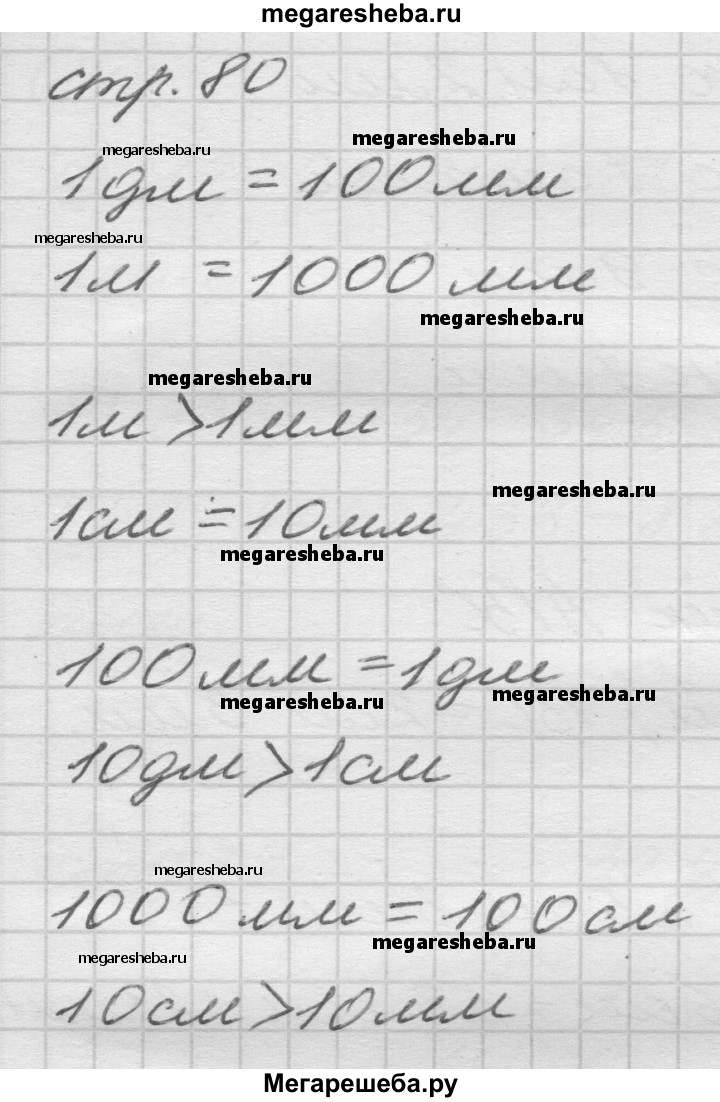 megaresheba.ru
стр. 80
megaresheba.ru
megaresheba.ru
1дм = 100мм
megaresheba.ru
1м = 1000мм
megaresheba.ru
megaresheba.ru
1м > 1мм
megaresheba.ru
1см = 10мм
megaresheba.ru
100мм = 1дм
megaresheba.ru
megaresheba.ru
10дм > 1см
megaresheba.ru
1000мм = 100см
megaresheba.ru
megaresheba.ru
10см > 10мм
Мегарешеба.ру